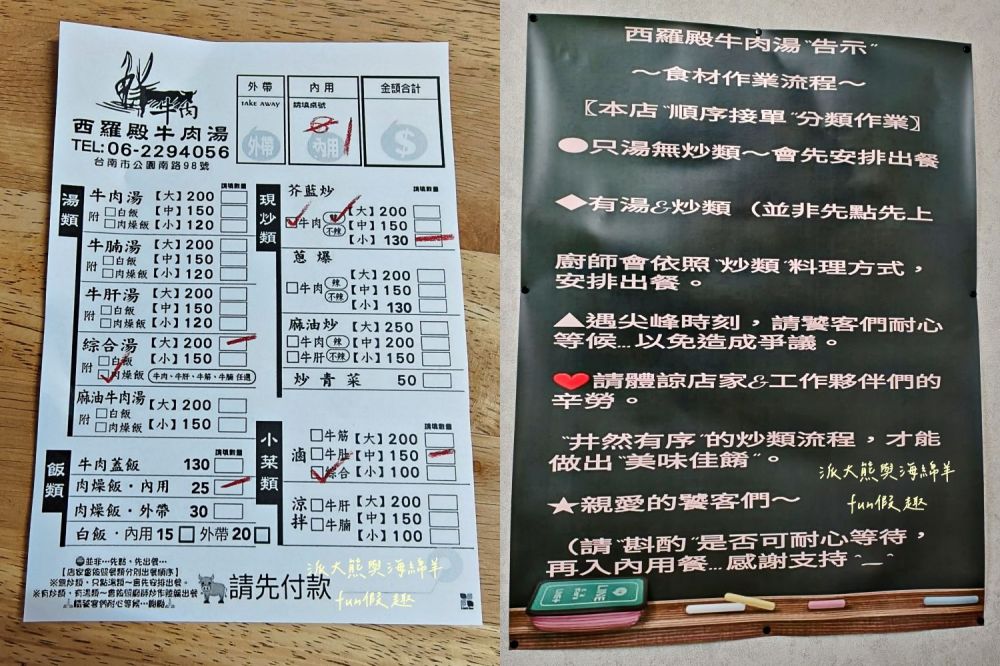 鮮牛肉
西羅殿牛肉湯
TEL:06-2294056
台南市公園南路98號
外帶
TAKE AWAY
外帶
內用
請填桌號
8
內用
金額合計
$
湯類
請填數量
牛肉湯【大】200
附 □白飯【中】150
□肉燥飯【小】120
牛腩湯【大】200
附 □白飯【中】150
□肉燥飯【小】120
牛肝湯【大】200
附 □白飯【中】150
□肉燥飯【小】120
綜合湯【大】200
附 □白飯【小】150
□肉燥飯(牛肉、牛肝、牛筋、牛腩 任選)
麻油牛肉湯【大】200
附 □白飯
□肉燥飯【小】150
飯類
請填數量
牛肉蓋飯 130
肉燥飯·內用 25
肉燥飯·外帶 30
白飯·內用15□ 外帶20□
現炒類
請填數量
芥蘭炒
【大】200
□牛肉 不辣【中】150
【小】130
蔥爆
【大】200
□牛肉 辣 不辣【中】150
【小】130
麻油炒【大】250
□牛肉 辣【中】200
□牛肝 不辣【小】150
炒青菜 50
小菜類
請填數量
滷 □牛筋【大】200
□牛肚【中】150
□綜合【小】100
涼拌 □牛肝【大】200
□牛腩【中】150
【小】100
並非…先點、先出餐…
【店家會依照餐類分別出餐順序】
※無炒類，只點湯類～會先安排出餐。
請先付款
派大熊與海綿羊
fun假趣
西羅殿牛肉湯"告示"
～食材作業流程～
〖本店"順序接單"分類作業〗
●只湯無炒類～會先安排出餐
◆有湯&炒類（並非先點先上
廚師會依照"炒類"料理方式，
安排出餐。
▲遇尖峰時刻，請饕客們耐心
等候…以免造成爭議。
❤請體諒店家&工作夥伴們的
辛勞。
"井然有序"的炒類流程，才能
做出"美味佳餚"。
派大熊與海綿羊
fun假趣
★親愛的饕客們～
（請"斟酌"是否可耐心等待，
再入內用餐…感謝支持^_^
LINE